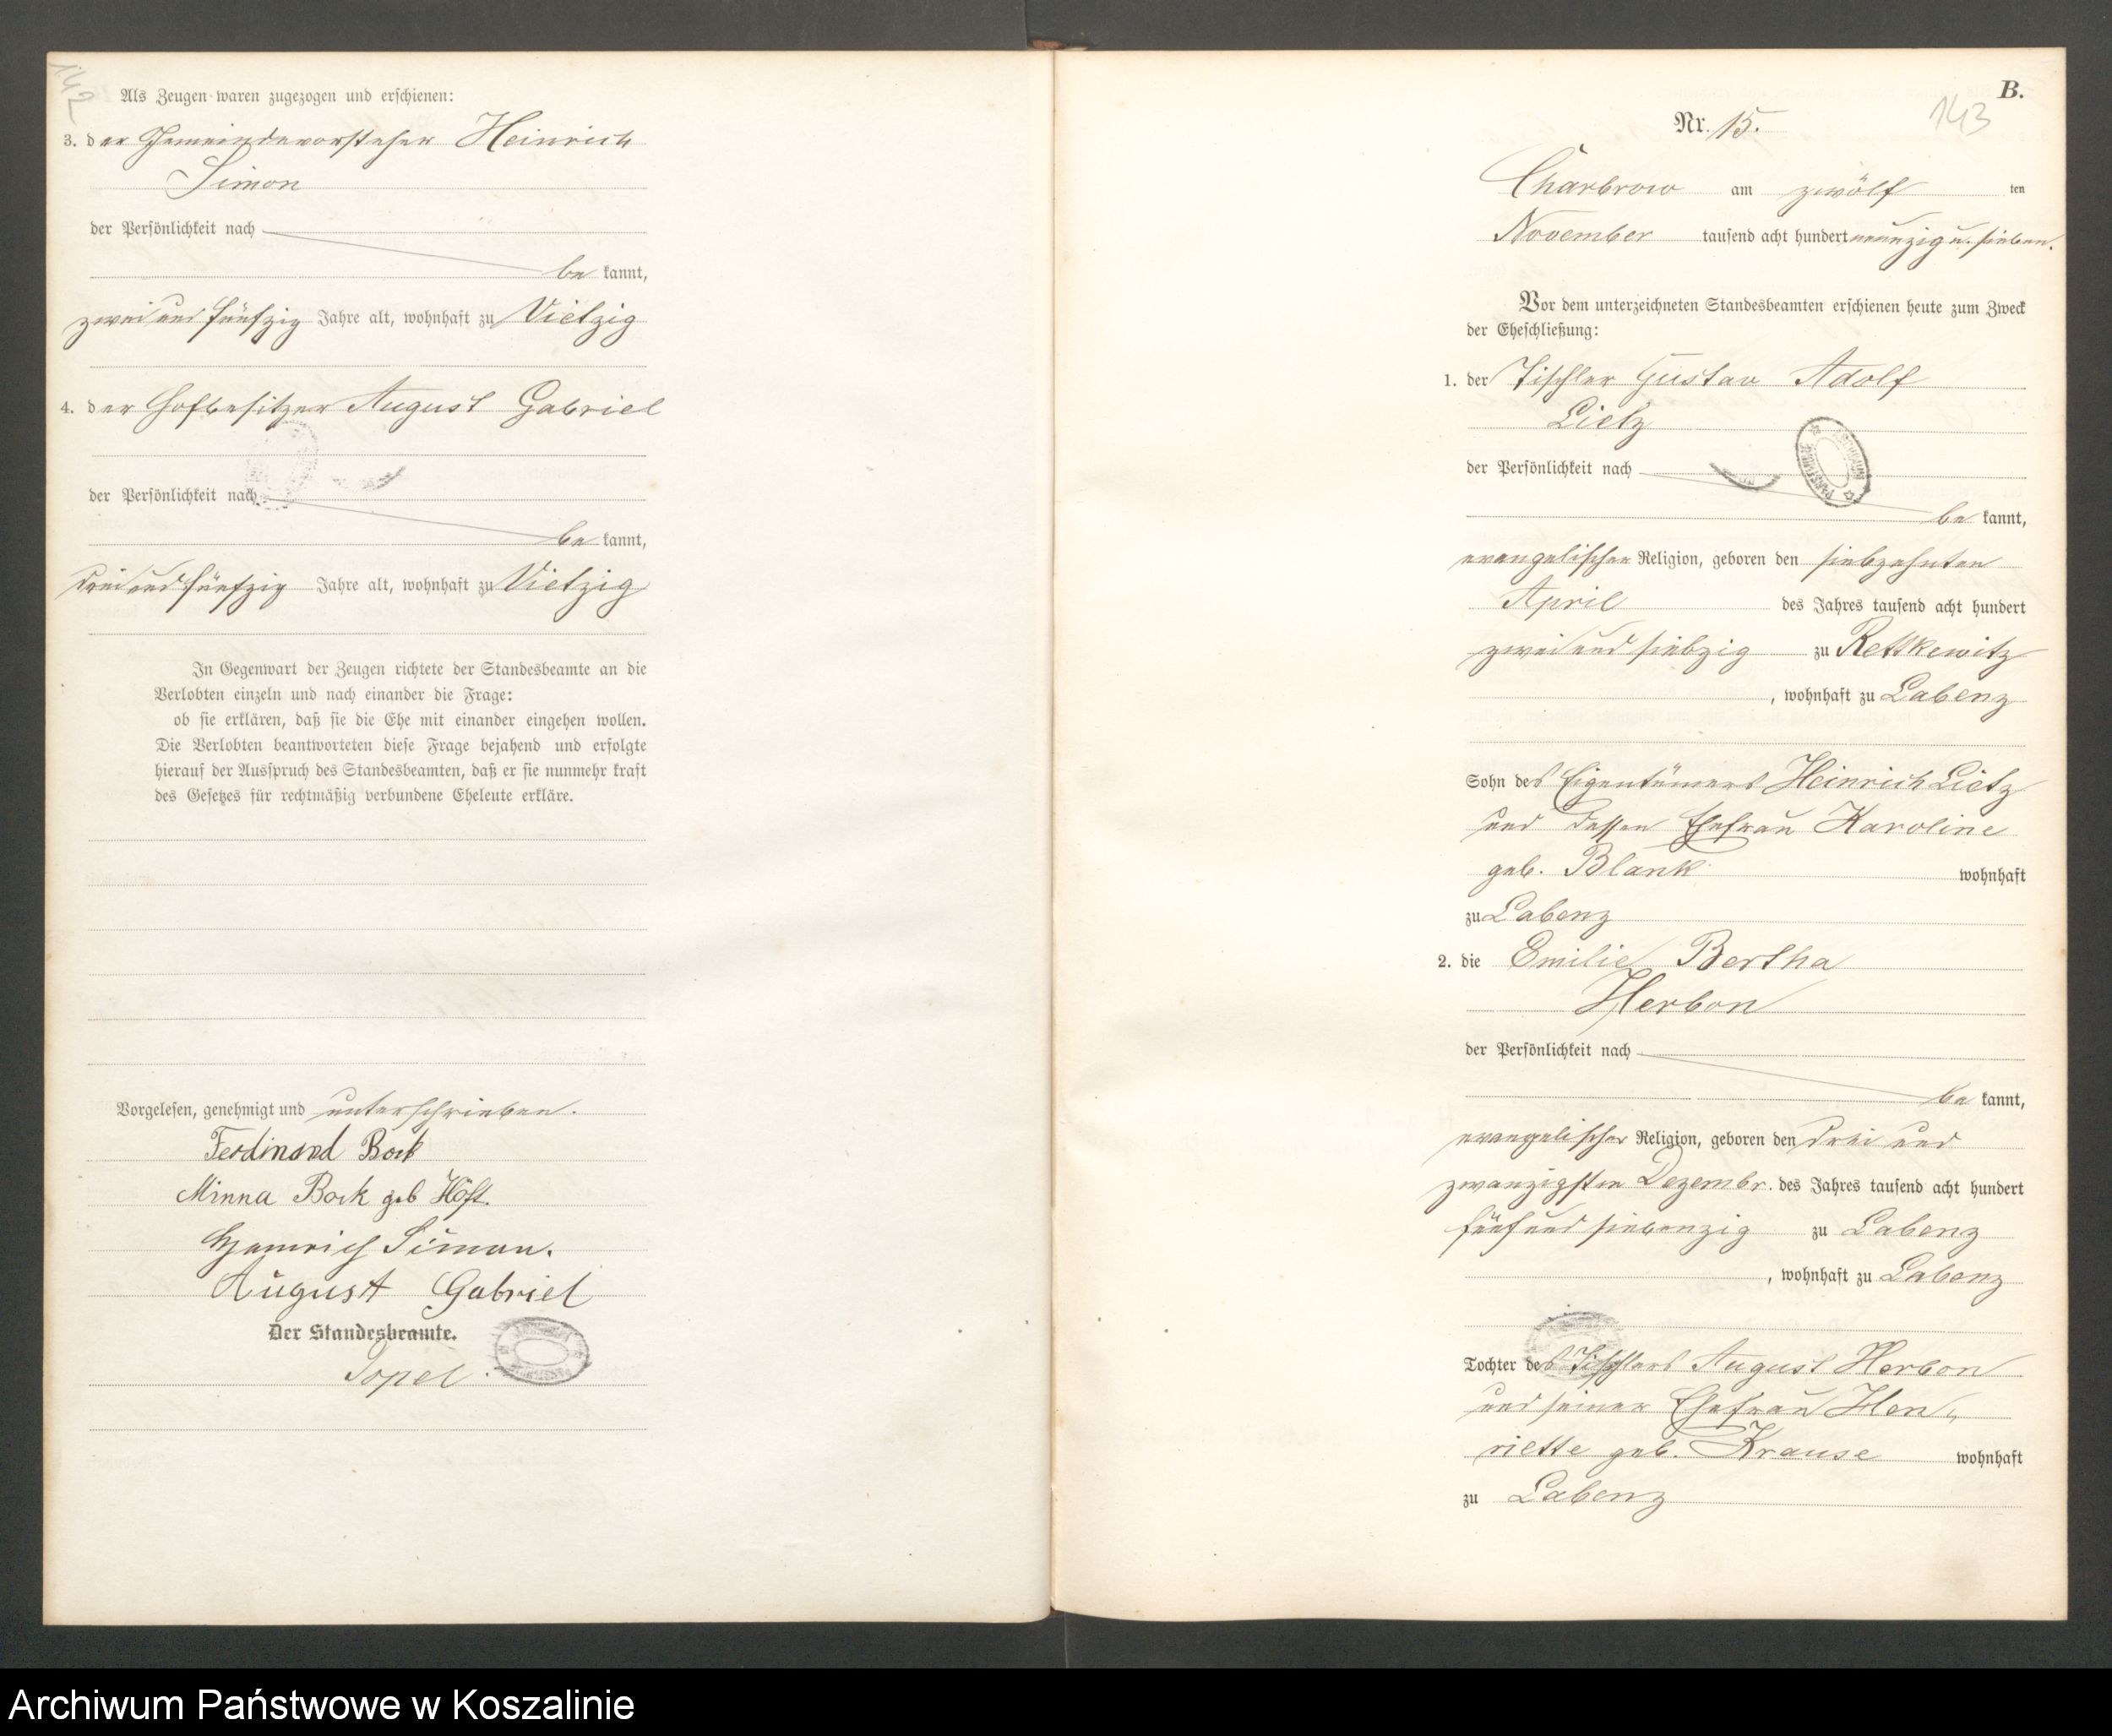 142
Als Zeugen waren zugezogen und erschienen:
3. der Gemeindevorsteher Heinrich
Simon
der Persönlichkeit nach
be kannt,
zwei und fünfzig Jahre alt, wohnhaft zu Vietzig
4. der Hofbesitzer August Gabriel
der Persönlichkeit nach
be kannt,
drei und fünfzig Jahre alt, wohnhaft zu Vietzig
In Gegenwart der Zeugen richtete der Standesbeamte an die
Verlobten einzeln und nach einander die Frage:
ob sie erklären, daß sie die Ehe mit einander eingehen wollen.
Die Verlobten beantworteten diese Frage bejahend und erfolgte
hierauf der Ausspruch des Standesbeamten, daß er sie nunmehr kraft
des Gesetzes für rechtmäßig verbundene Eheleute erkläre.
Vorgelesen, genehmigt und unterschrieben.
Ferdinand Bock
Minna Bock geb Höft.
Heinrich Simon.
August Gabriel
Der Standesbeamte.
Topel.
B.
143
Nr. 15.
Charbrow am zwölf ten
November tausend acht hundert neunzig u. sieben.
Vor dem unterzeichneten Standesbeamten erschienen heute zum Zweck
der Eheschließung:
1. der Tischler Gustav Adolf
Lietz
der Persönlichkeit nach
be kannt,
evangelischer Religion, geboren den siebzehnten
April des Jahres tausend acht hundert
zwei und siebzig zu Rettkewitz
, wohnhaft zu Labenz
Sohn des Eigentümers Heinrich Lietz
und dessen Ehefrau Karoline
geb. Blank wohnhaft
zu Labenz
2. die Emilie Bertha
Herbon
der Persönlichkeit nach
be kannt,
evangelischer Religion, geboren den drei und
zwanzigsten Dezembr. des Jahres tausend acht hundert
fünf und siebenzig zu Labenz
, wohnhaft zu Labenz
Tochter des Tischlers August Herbon
und seiner Ehefrau Hen-
riette geb. Krause wohnhaft
zu Labenz
Archiwum Państwowe w Koszalinie